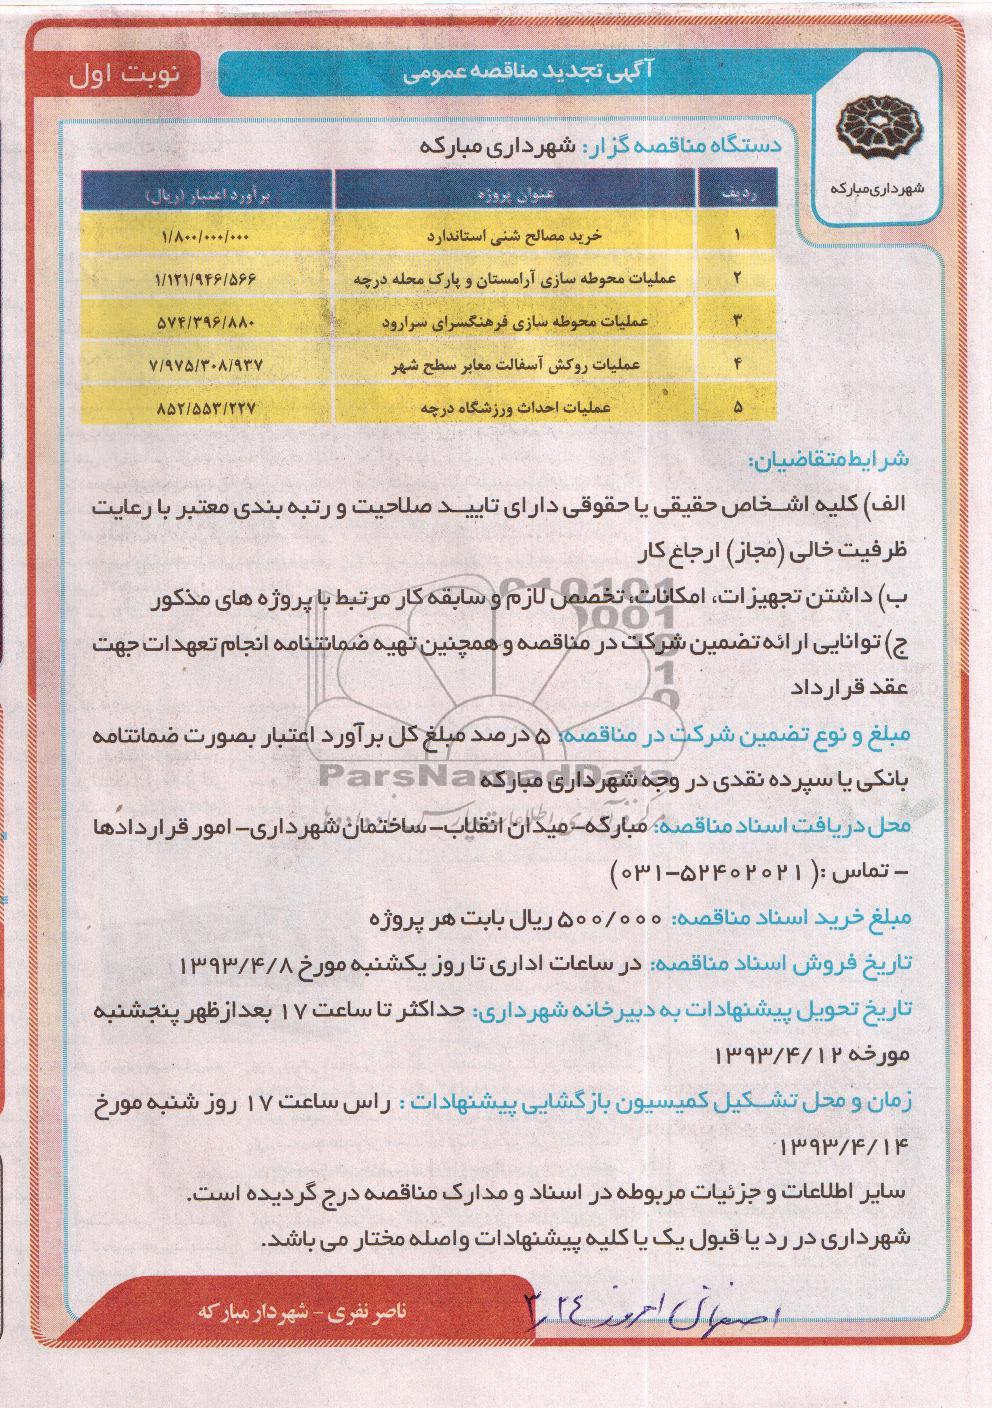 نوبت اول
آگهی تجدید مناقصه عمومی
شهرداری مبارکه
دستگاه مناقصه گزار: شهرداری مبارکه
ردیف عنوان پروژه برآورد اعتبار (ریال)
۱ خرید مصالح شنی استاندارد ۱/۸۰۰/۰۰۰/۰۰۰
۲ عملیات محوطه سازی آرامستان و پارک محله درچه ۱/۱۲۱/۹۴۶/۵۶۶
۳ عملیات محوطه سازی فرهنگسرای سرارود ۵۷۴/۳۹۶/۸۸۰
۴ عملیات روکش آسفالت معابر سطح شهر ۷/۹۷۵/۳۰۸/۹۳۷
۵ عملیات احداث ورزشگاه درچه ۸۵۲/۵۵۳/۲۲۷
شرایط متقاضیان:
الف) کلیه اشخاص حقیقی یا حقوقی دارای تایید صلاحیت و رتبه بندی معتبر با رعایت
ظرفیت خالی (مجاز) ارجاع کار
ب) داشتن تجهیزات، امکانات، تخصص لازم و سابقه کار مرتبط با پروژه های مذکور
ج) توانایی ارائه تضمین شرکت در مناقصه و همچنین تهیه ضمانتنامه انجام تعهدات جهت
عقد قرارداد
مبلغ و نوع تضمین شرکت در مناقصه: ۵ درصد مبلغ کل برآورد اعتبار بصورت ضمانتنامه
بانکی یا سپرده نقدی در وجه شهرداری مبارکه
محل دریافت اسناد مناقصه: مبارکه- میدان انقلاب- ساختمان شهرداری- امور قراردادها
- تماس :( ۵۲۴۰۲۰۲۱-۰۳۱)
مبلغ خرید اسناد مناقصه: ۵۰۰/۰۰۰ ریال بابت هر پروژه
تاریخ فروش اسناد مناقصه: در ساعات اداری تا روز یکشنبه مورخ ۱۳۹۳/۴/۸
تاریخ تحویل پیشنهادات به دبیرخانه شهرداری: حداکثر تا ساعت ۱۷ بعدازظهر پنجشنبه
مورخه ۱۳۹۳/۴/۱۲
زمان و محل تشکیل کمیسیون بازگشایی پیشنهادات : راس ساعت ۱۷ روز شنبه مورخ
۱۳۹۳/۴/۱۴
سایر اطلاعات و جزئیات مربوطه در اسناد و مدارک مناقصه درج گردیده است.
شهرداری در رد یا قبول یک یا کلیه پیشنهادات واصله مختار می باشد.
ناصر نفری - شهردار مبارکه
اصفهان امروز ۳/۲۴
ParsNamadData